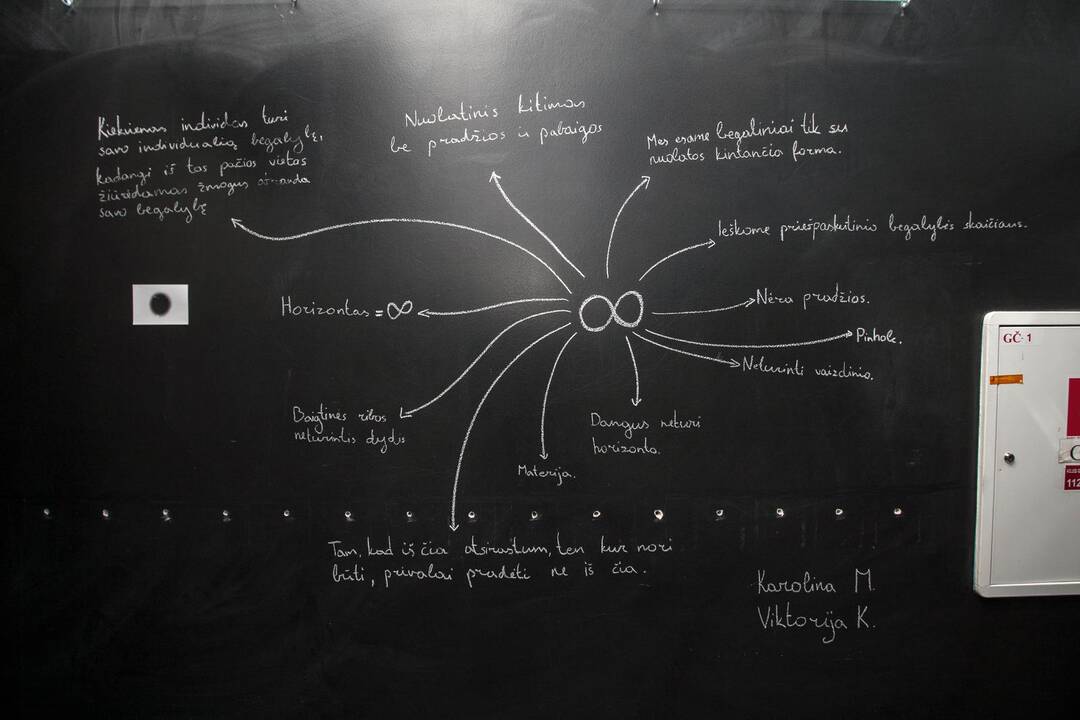 Kiekvienas individas turi
savo individualią begalybę,
kadangi iš tos pačios vietos
žiūrėdamas žmogus atranda
savo begalybę
Nuolatinis kitimas
be pradžios ir pabaigos
Mes esame begaliniai tik su
nuolatos kintančia forma.
Ieškome priešpaskutinio begalybės skaičiaus.
Horizontas = ∞
∞
Nėra pradžios.
Pinhole.
Neturinti vaizdinio.
Baigtinės ribos
neturintis dydis
Dangus neturi
horizonto.
Materija.
Tam, kad iš čia atsirastum, ten kur nori
būti, privalai pradėti ne iš čia.
Karolina M.
Viktorija K.
GČ-1
112